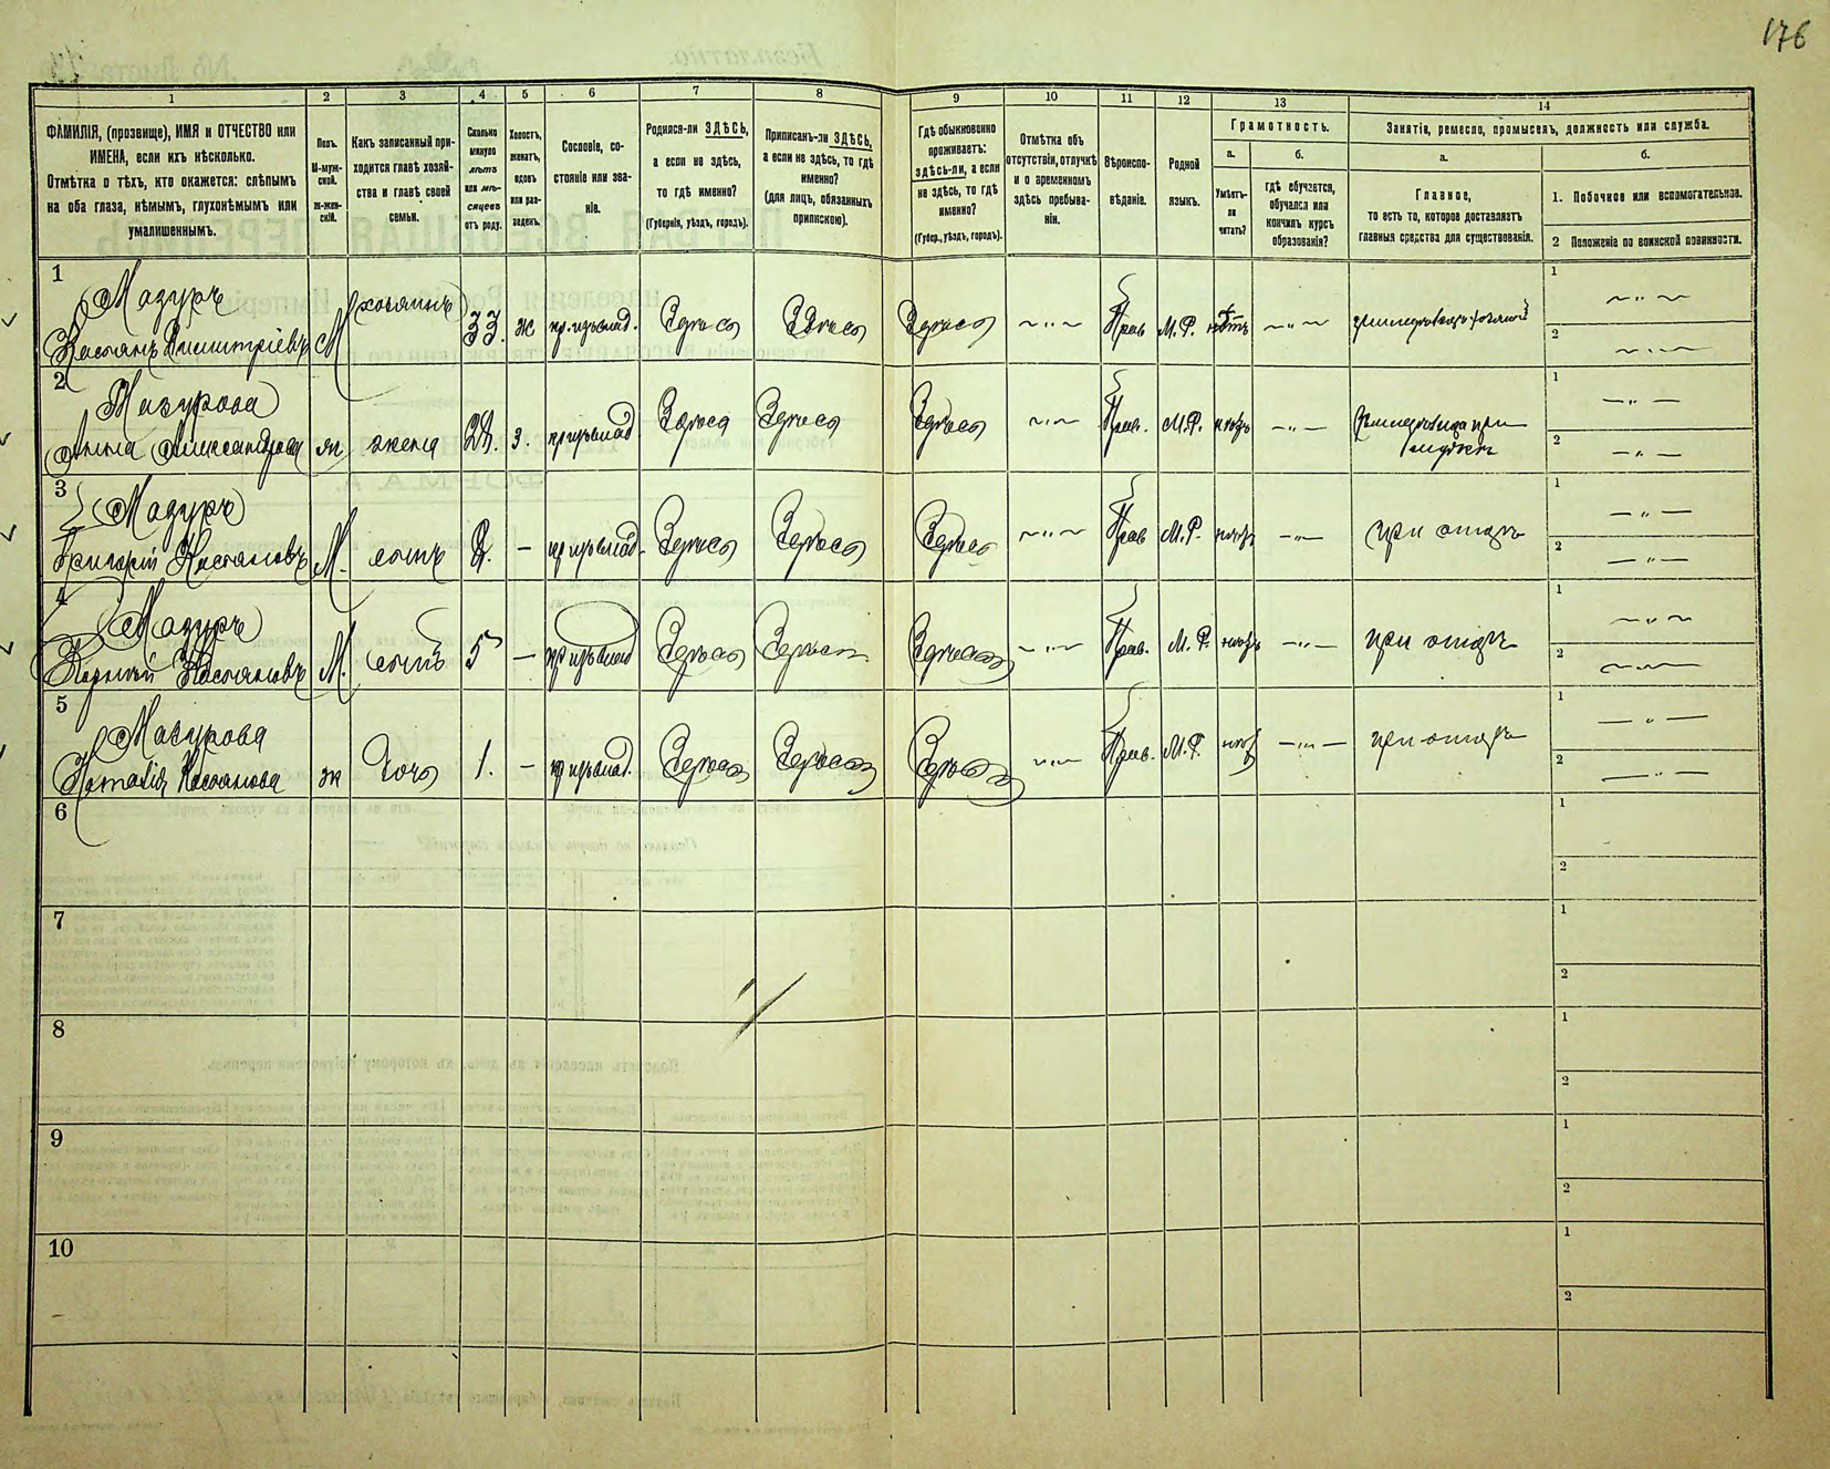 176
1 2 3 4 5 6 7 8 9 10 11 12 13 14
ФАМИЛІЯ, (прозвище), ИМЯ и ОТЧЕСТВО или
ИМЕНА, если ихъ нѣсколько.
Отмѣтка о тѣхъ, кто окажется: слѣпымъ
на оба глаза, нѣмымъ, глухонѣмымъ или
умалишеннымъ.
Полъ.
М-муж-
ской.
ж-жен-
скій.
Какъ записанный при-
ходится главѣ хозяй-
ства и главѣ своей
семьи.
Сколько
минуло
лѣтъ
или мѣ-
сяцевъ
отъ роду.
Холостъ,
женатъ,
вдовъ
или раз-
веденъ.
Сословіе, со-
стояніе или зва-
ніе.
Родился-ли ЗДѢСЬ,
а если не здѣсь,
то гдѣ именно?
(Губернія, уѣздъ, городъ).
Приписанъ-ли ЗДѢСЬ,
а если не здѣсь, то гдѣ
именно?
(для лицъ, обязанныхъ
припискою).
Гдѣ обыкновенно
проживаетъ:
здѣсь-ли, а если
не здѣсь, то гдѣ
именно?
(Губер., уѣздъ, городъ).
Отмѣтка объ
отсутствіи, отлучкѣ
и о временномъ
здѣсь пребыва-
ніи.
Вѣроиспо-
вѣданіе.
Родной
языкъ.
Грамотность.
а.
Умѣетъ-
ли
читать?
б.
гдѣ обучается,
обучался или
кончилъ курсъ
образованія?
Занятіе, ремесло, промыселъ, должность или служба.
а.
Главное,
то есть то, которое доставляетъ
главныя средства для существованія.
б.
1. Побочное или вспомогательное.
2 Положеніе по воинской повинности.
1
Мазуръ
Касьянъ Дмитріевъ М хозяинъ 33. ж Здѣсь Здѣсь Здѣсь Прав М.Р. нѣтъ
1
2
2
Мазурова
Анна Александрова ж жена 28. З. Здѣсь Здѣсь Здѣсь Прав. М.Р.
1
2
3
Мазуръ
Григорій Касьяновъ М. сынъ 8. – Здѣсь Здѣсь Здѣсь Прав М.Р. при отцѣ
1
2
4
Мазуръ
Касьяновъ М. сынъ 5 – Здѣсь Здѣсь Здѣсь Прав. М.Р. при отцѣ
1
2
5
Мазурова
Наталія Касьянова ж дочь 1. – Здѣсь Здѣсь Здѣсь Прав. М.Р. при отцѣ
1
2
6
1
2
7
1
2
8
1
2
9
1
2
10
1
2